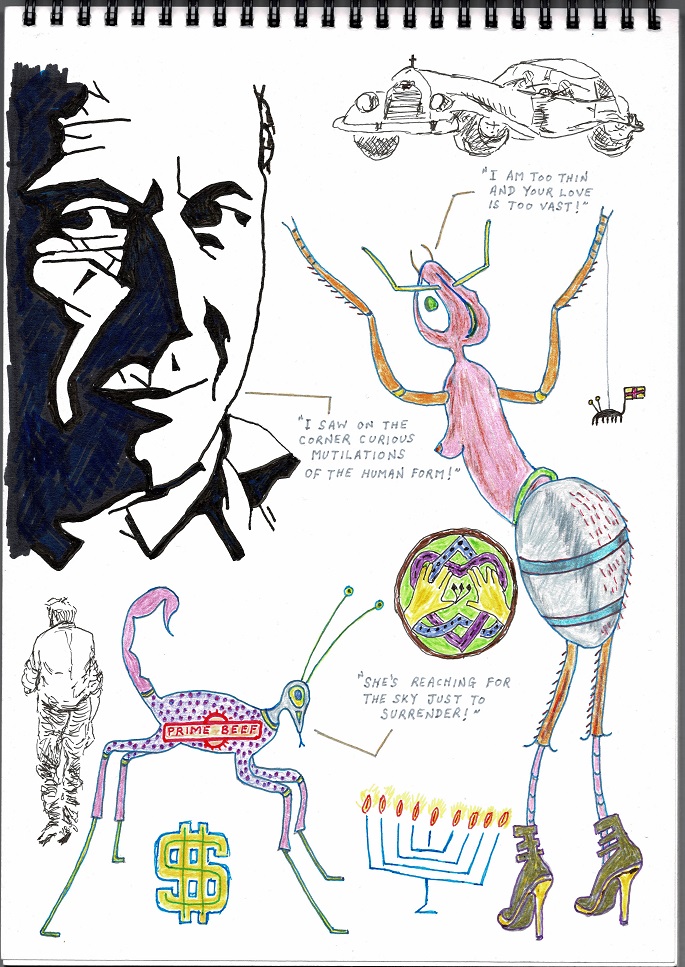 "I AM TOO THIN
AND YOUR LOVE
IS TOO VAST!"
"I SAW ON THE
CORNER CURIOUS
MUTILATIONS
OF THE HUMAN FORM!"
"SHE'S REACHING FOR
THE SKY JUST TO
SURRENDER!"
PRIME BEEF
$